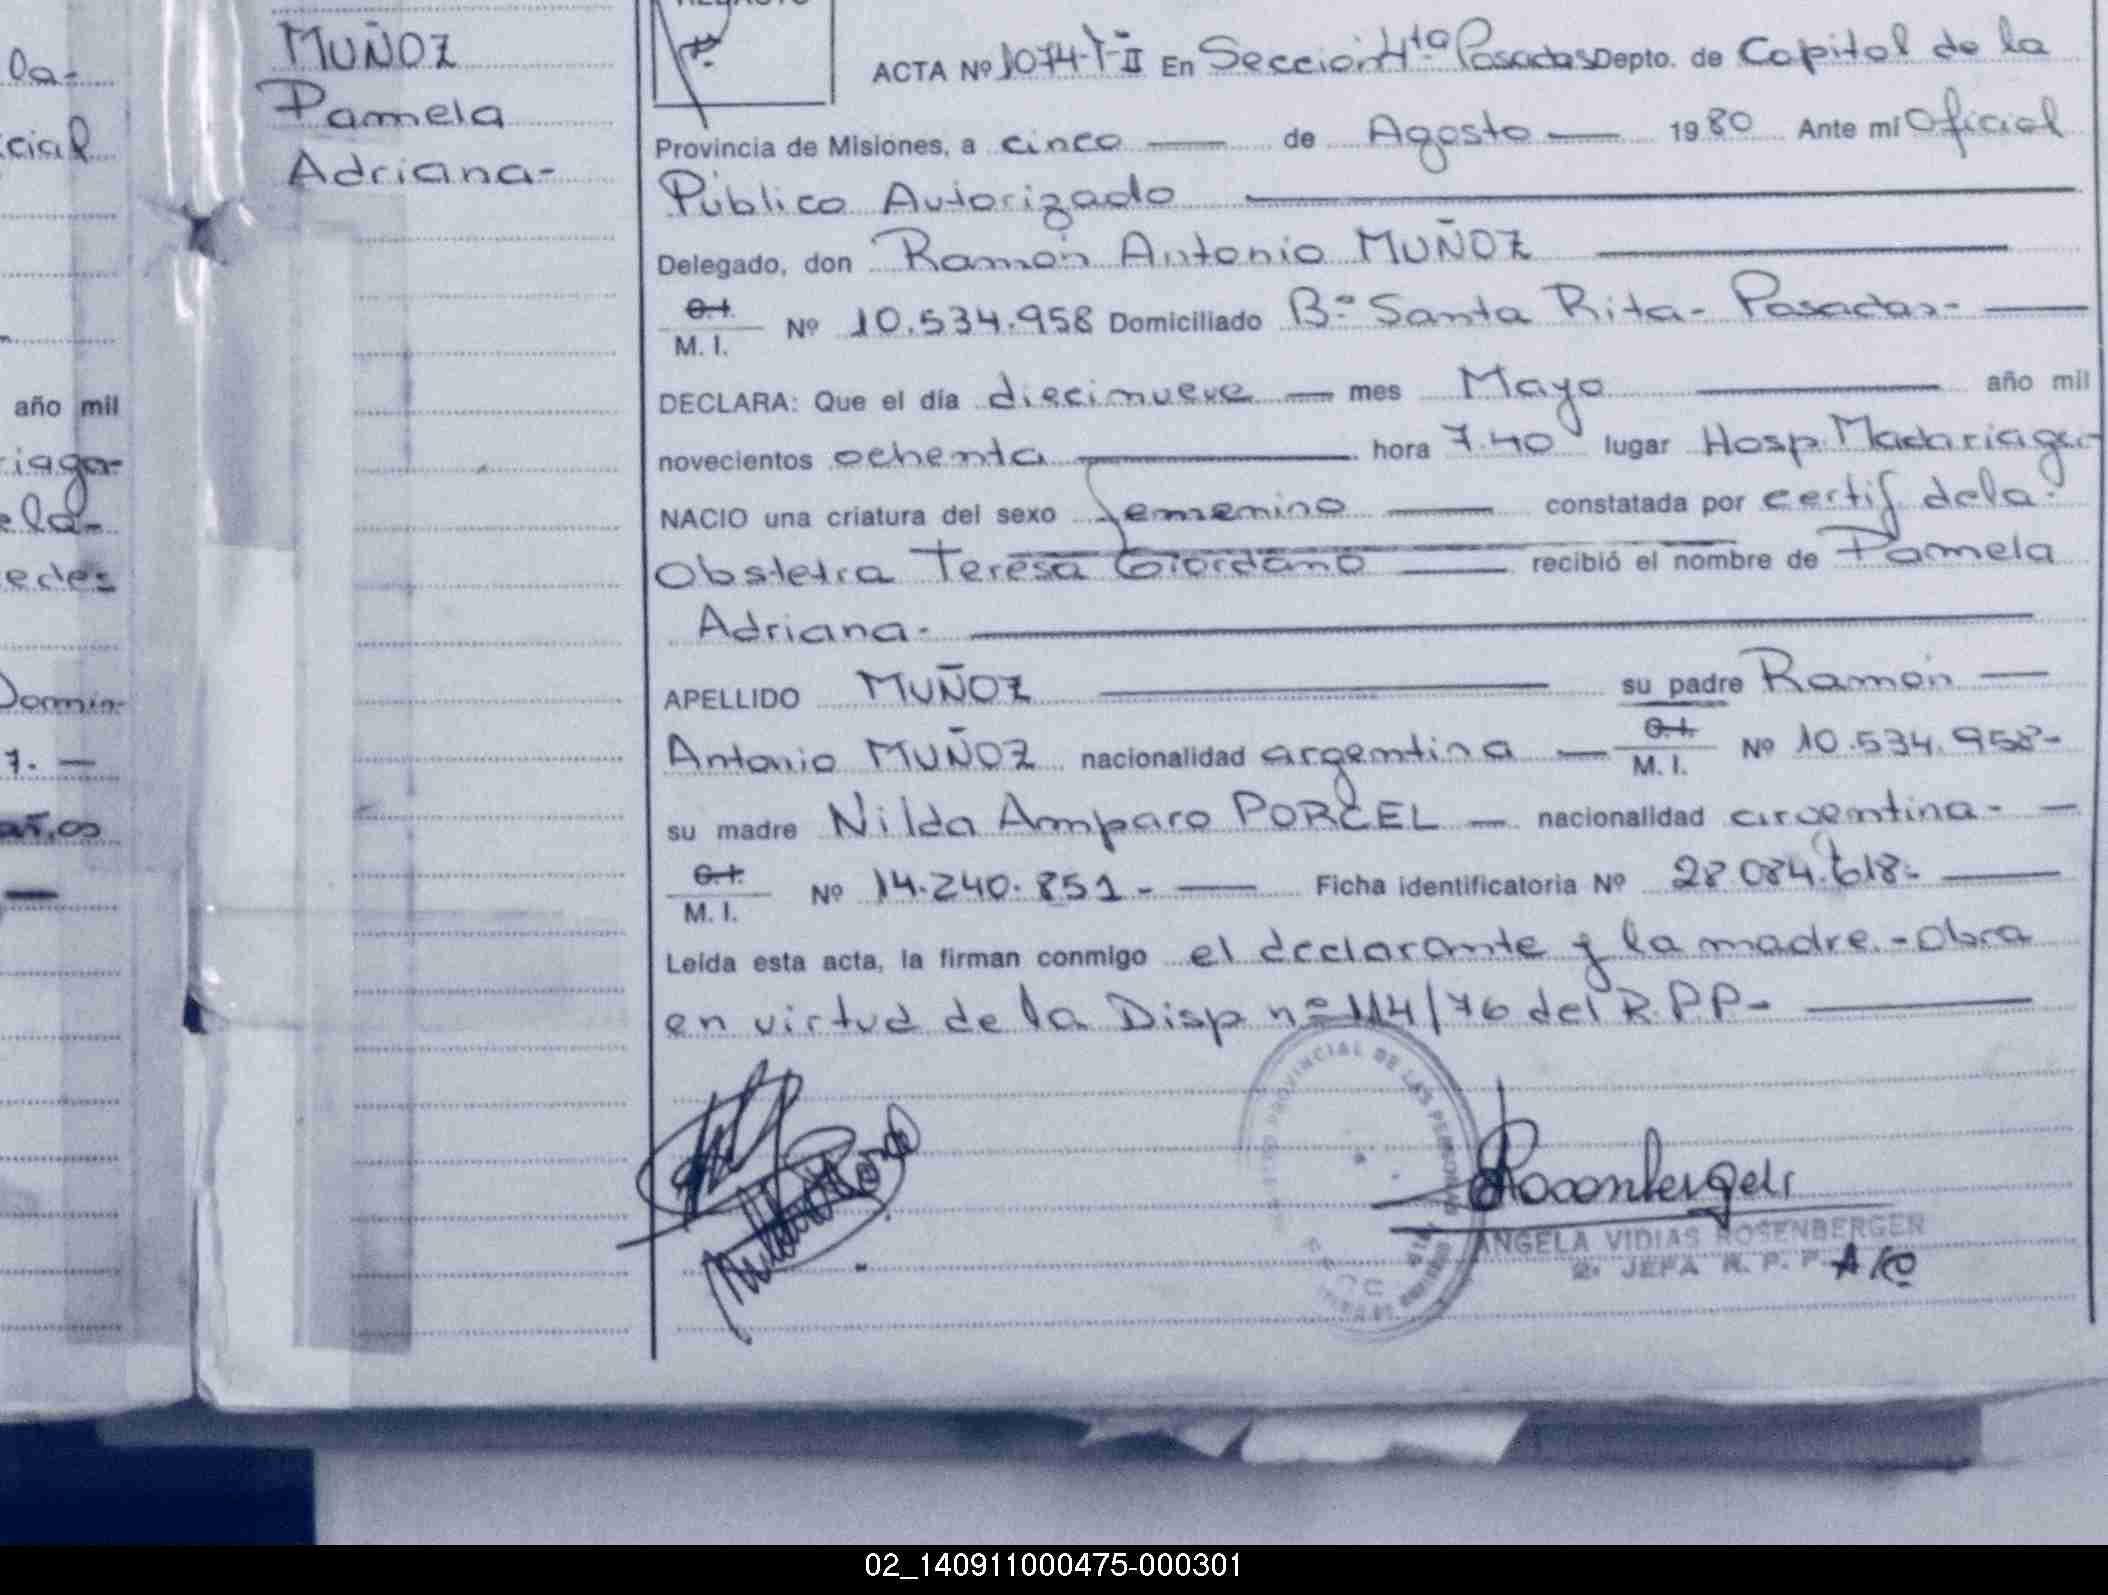 la-
cial
año mil
riaga-
e la-
edes
Domin-
7. —
años
MUÑOZ
Pamela
Adriana-
ACTA Nº 1074-T-II En Sección 4ta Posadas Depto. de Capital de la
Provincia de Misiones, a cinco — de Agosto — 1980 Ante mi Oficial
Público Autorizado
Delegado, don Ramón Antonio MUÑOZ
C.I.
M. I. Nº 10.534.958 Domiciliado Bº Santa Rita- Posadas-
DECLARA: Que el día diecinueve — mes Mayo — año mil
novecientos ochenta — hora 7.40 lugar Hosp. Madariaga-
NACIO una criatura del sexo femenino — constatada por certif. de la
Obstetra Teresa Giordano — recibió el nombre de Pamela
Adriana-
APELLIDO MUÑOZ — su padre Ramón —
Antonio MUÑOZ nacionalidad argentina — C.I. M. I. Nº 10.534.958-
su madre Nilda Amparo PORCEL — nacionalidad argentina- —
C.I.
M. I. Nº 14.240.851- — Ficha identificatoria Nº 28.084.618- —
Leida esta acta, la firman conmigo el declarante y la madre.-Obra
en virtud de la Disp nº 114/76 del R.P.P- —
PROVINCIAL DE LAS PERSONAS
Rosenberger
ANGELA VIDIAS ROSENBERGER
2ª JEFA R. P. P.
A/C
02_140911000475-000301